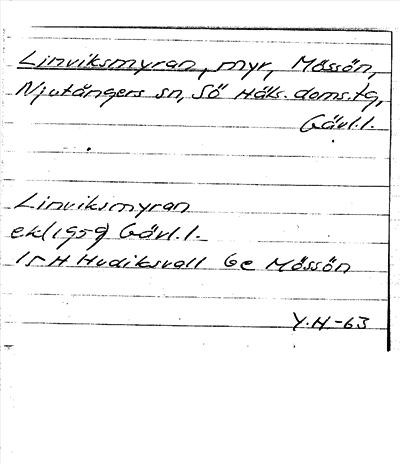 Linviksmyran, myr, Mössön,
Njutångers sn, Sö Häls. doms.tg,
Gävl.l.
Linviksmyran
ekl 1959 Gävl.l.
15 H Hudiksvall 6e Mössön
Y.H-63